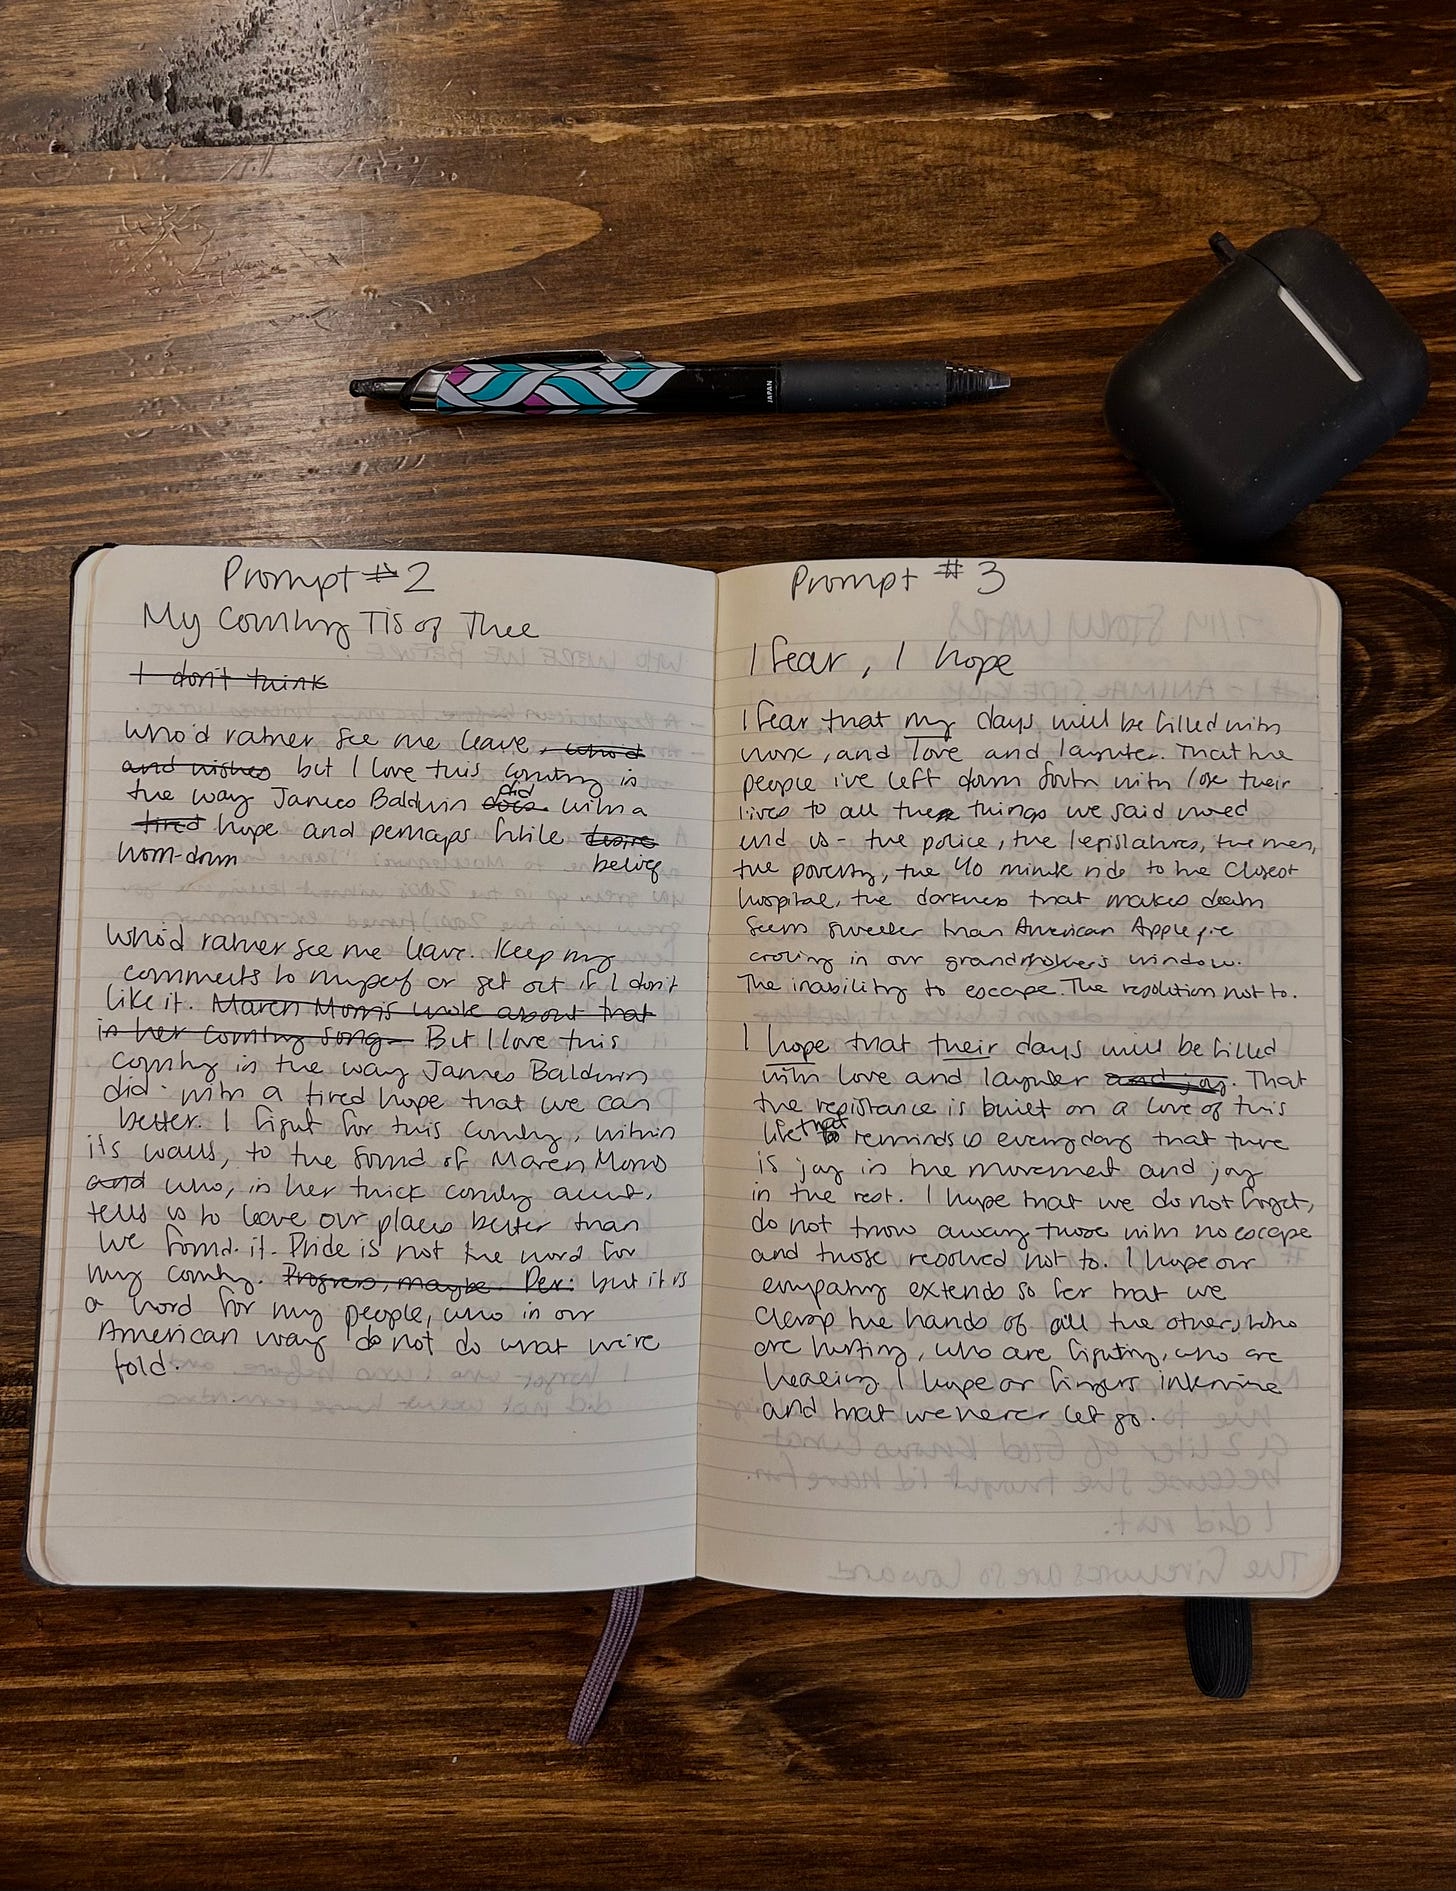 JAPAN
Prompt #2
My Country Tis of Thee
I don't think
Who'd rather see me leave, who'd
and wishes but I love this country in
the way James Baldwin does did with a
tired hope and perhaps futile desire
worn-down belief
Who'd rather see me leave. Keep my
comments to myself or get out if I don't
like it. Maren Morris wrote about that
in her country song. But I love this
country in the way James Baldwin
did - with a tired hope that we can
better. I fight for this country, within
its walls, to the sound of Maren Morris
and who, in her thick country accent,
tells us to leave our places better than
we found it. Pride is not the word for
my country. Progress, maybe. Per: but it is
a word for my people, who in our
American way do not do what we're
told.
Prompt #3
I fear, I hope
I fear that my days will be filled with
work, and love and laughter. That the
people i've left down South with lose their
lives to all the things we said would
end us - the police, the legislatures, the men,
the poverty, the 40 minute ride to the closest
hospital, the darkness that makes death
seem sweeter than American Apple pie
cooling in our grandmother's window.
The inability to escape. The resolution not to.
I hope that their days will be filled
with love and laughter and joy. That
the resistance is built on a love of this
life that reminds us everyday that there
is joy in the movement and joy
in the rest. I hope that we do not forget,
do not throw away those with no escape
and those resolved not to. I hope our
empathy extends so far that we
clasp the hands of all the others, who
are hurting, who are fighting, who are
healing. I hope our fingers intertwine
and that we never let go.